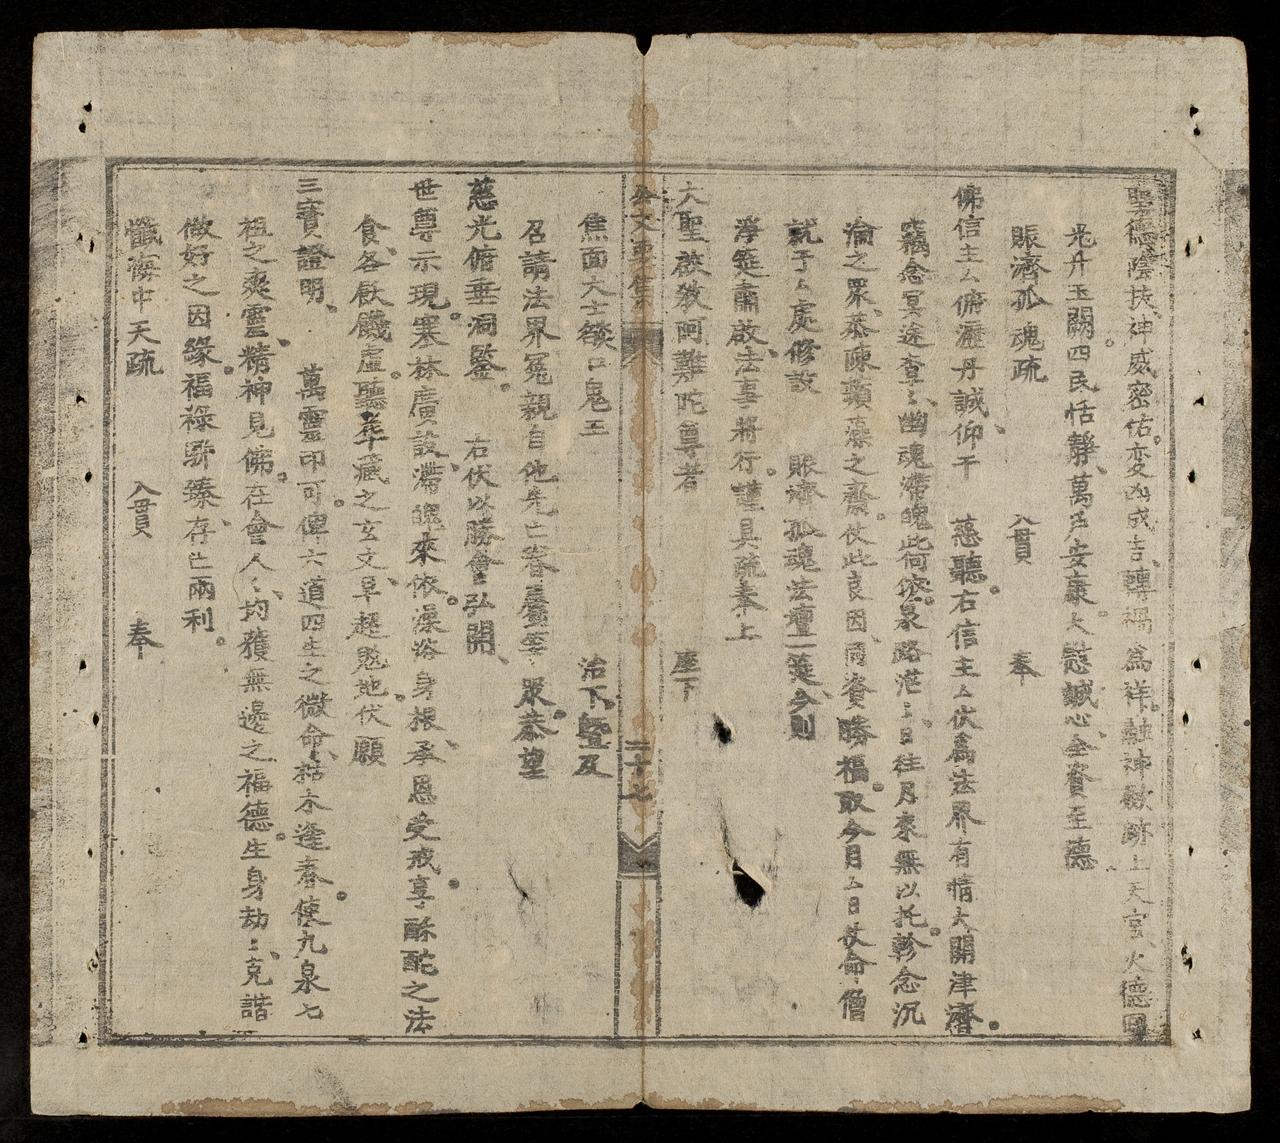 聖德陰扶神威密佑變凶成吉轉禍為祥融神歛跡上天宮火德回
光丹玉闕四民恬靜萬戶安康大慰誠心全資至德
賑濟孤魂疏 入貫 奉
佛信主厶俯瀝丹誠仰干 慈聽右信主厶伏為法界有情大開津濟
竊念冥途杳〻幽魂滯魄此何依泉路茫〻日往月來無以托軫念沉
淪之眾恭陳蘋藻之齋仗此良因用資勝福取今月厶日仗命僧
就于厶處修設 賑濟孤魂法壇一筵今則
淨筵肅啟法事將行謹具疏奉上
大聖啟教阿難陀尊者 座下
公文 二十七
焦面大士燄口鬼王 治下曁及
召請法界冤親自他先亡眷屬等眾恭望
慈光俯垂洞鑒 右伏以勝會弘開
世尊示現寒林廣設滯魄來依澡浴身根承恩受戒享酥酡之法
食各飲饑虛聽華藏之玄文早超冤地伏願
三寶證明 萬靈印可俾六道四生之微命枯木逢春使九泉七
祖之爽靈精神見佛在會人〻均獲無邊之福德生身劫〻克諧
做好之因緣福祿駢臻存亡兩利
懺悔中天疏 入貫 奉